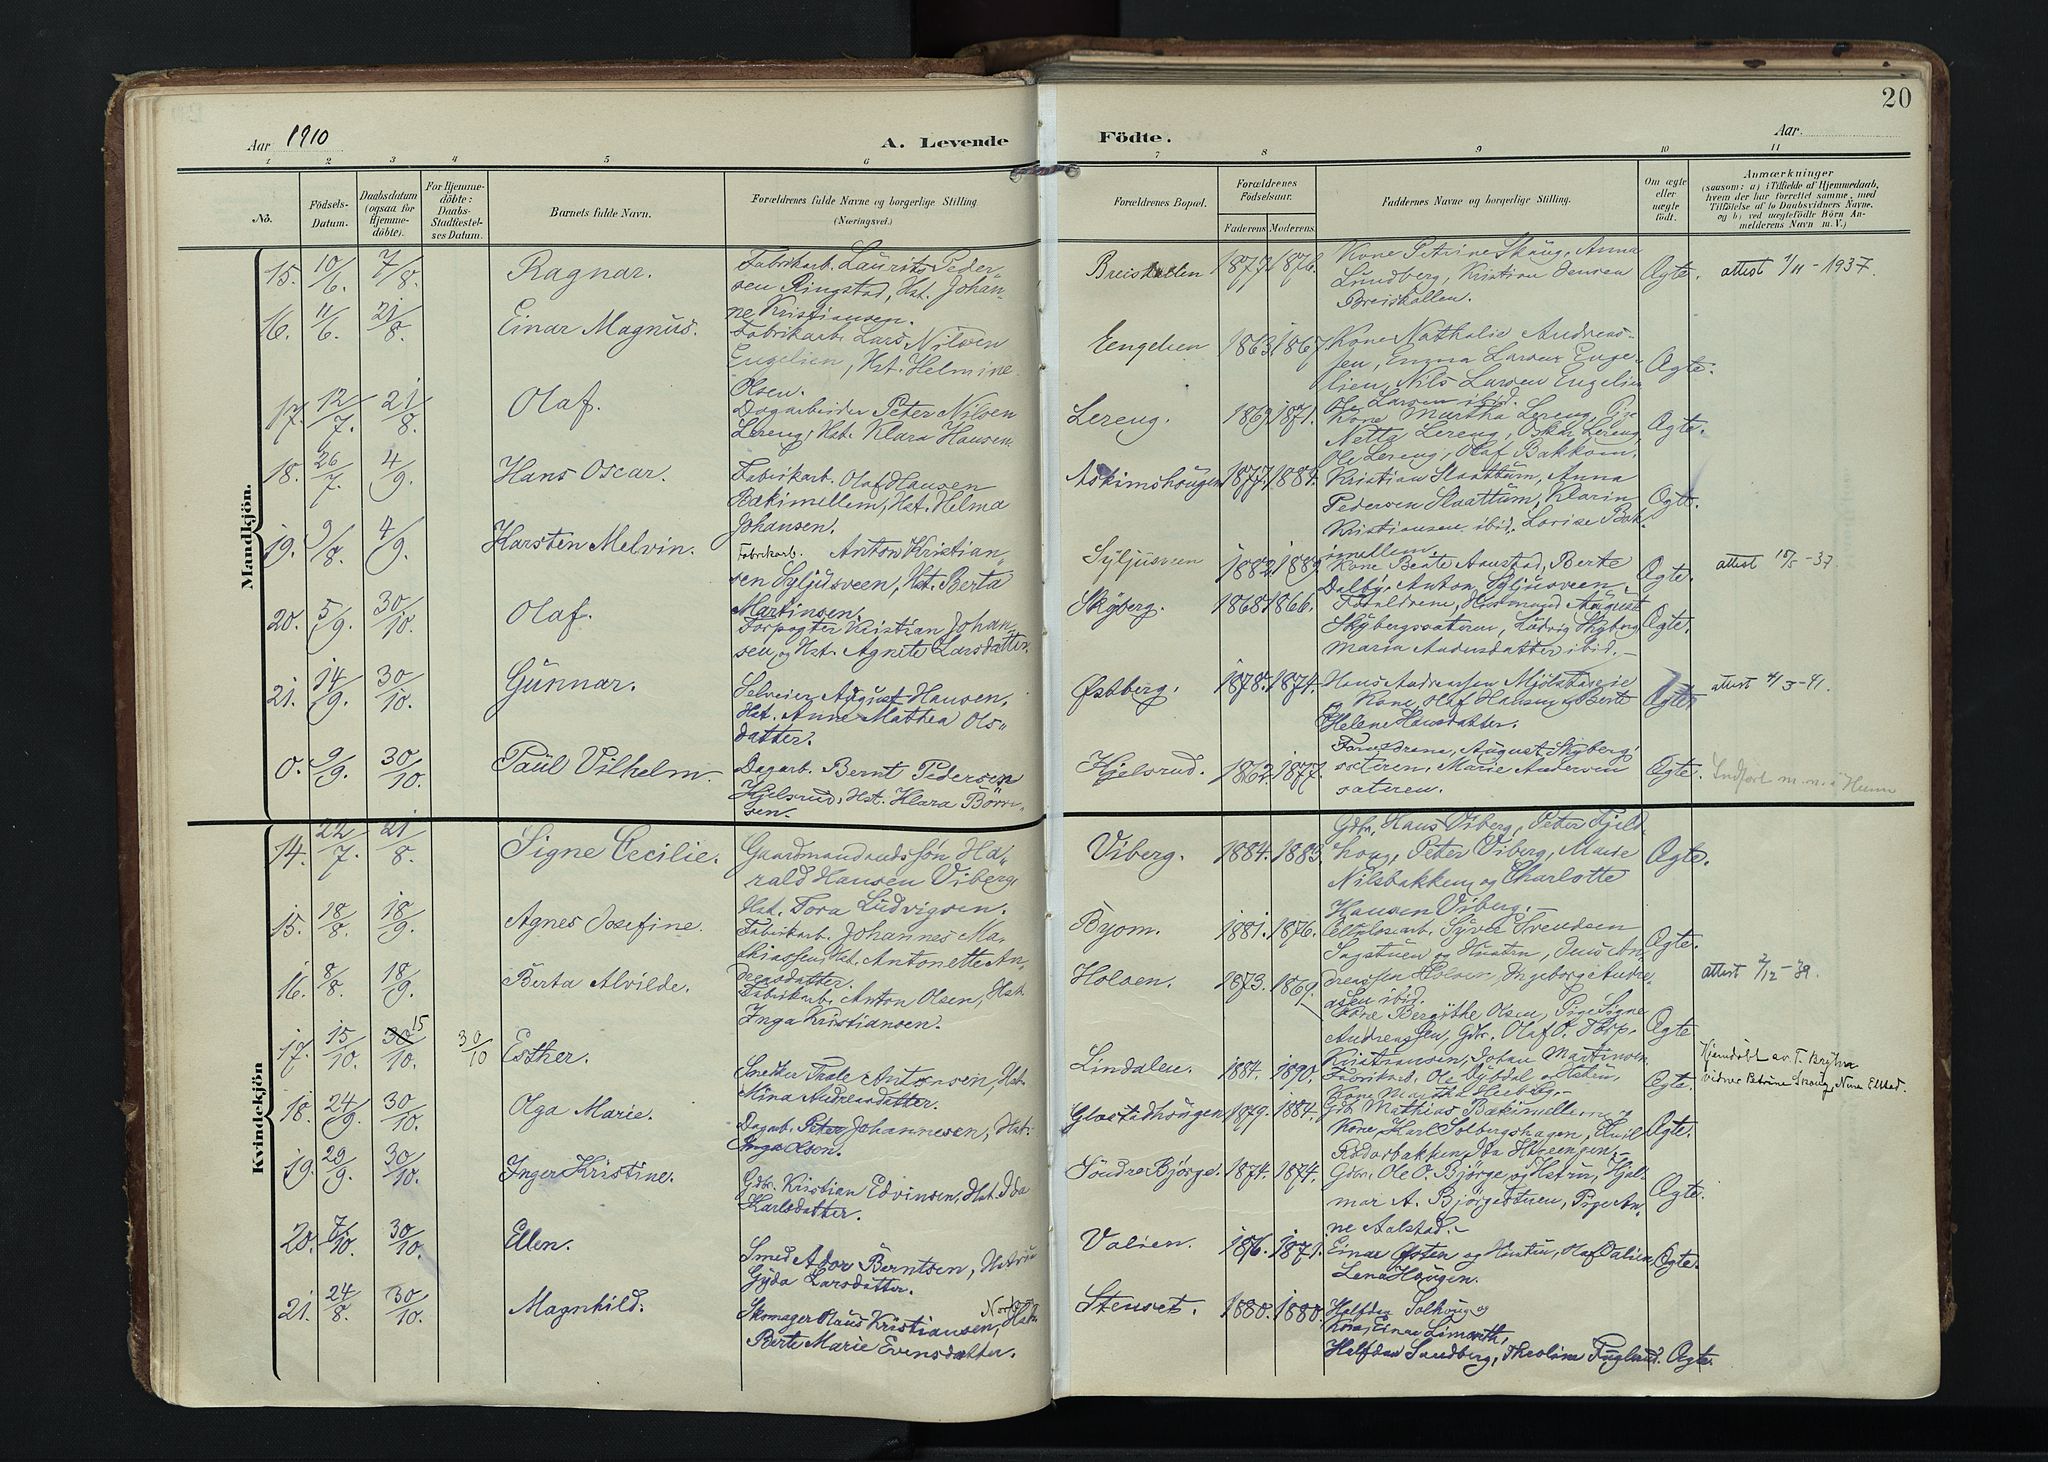 20
Aar 1910
A. Levende
Födte.
Aar.
1 2 3 4 5 6 7 8 9 10 11
No.
Födsels-
Datum.
Daabsdatum
(ogsaa for
Hjemme-
döbte).
For Hjemme-
döbte:
Daabs-
Stadfæstel-
ses Datum.
Barnets fulde Navn.
Forældrenes fulde Navne og borgerlige Stilling
(Næringsvei.)
Forældrenes Bopæl.
Forældrenes
Födselsaar.
Faderens Moderens.
Faddernes Navne og borgerlige Stilling.
Om ægte
eller
uægte
født.
Anmærkninger
(saasom: a) i Tilfælde af Hjemmedaab,
hvem der har forrettet samme, med
Tilföielse af to Daabsvidners Navne,
og b) ved uægtefödte Börn An-
melderens Navn m. V.)
Mandkjön.
15. 10/6 7/8 Ragnar.
Fabrikarb. Laurits Peder-
sen Ringstad, Hst. Johan-
ne Kristiansen.
Breiskallen 1877. 1876.
Kone Petrine Skaug, Anna
Lundberg, Kristian Jensen
Breiskallen.
Ægte. attest 1/11-1937.
16. 11/6 21/8 Einar Magnus.
Fabrikarb. Lars Nilsen
Engelien, Hst. Helmine
Olsen.
Engelien 1863. 1867.
Kone Nathalie Andreas-
sen, Emma Larsen Enge-
lien, Nils Larsen Engelien
Ole Larsen ibid.
Ægte.
17. 12/7 21/8 Olaf.
Dagarbeider Peter Nilsen
Lereng, Hst. Klara Hansen.
Lereng. 1869. 1871.
Kone Martha Lereng, Pige
Netta Lereng, Oskar Lereng,
Ole Lereng, Olaf Bakkom.
Ægte.
18. 26/7 4/9. Hans Oscar.
Fabrikarb. Olaf Hansen
Bækimellem, Hst. Helma
Johansen.
Askimshaugen 1877. 1881.
Kristian Slaattum, Anna
Pedersen Slaattum, Klarin
Kristiansen ibid., Lovise Bæk-
imellem.
Ægte.
19. 9/8 4/9. Karsten Melvin.
Fabrikarb. Anton Kristian-
sen Syljusveen, Hst. Berta
Martinsen.
Syljusveen 1882. 1889.
Kone Beate Aanstad, Berte
Dalby, Anton Syljusveen.
Ægte. attest 15/5-37
20. 5/9. 30/10. Olaf.
Forpagter Kristian Johan-
sen, og Hst. Agnete Larsdatter.
Skyberg. 1868. 1866.
Forældrene, Husmand August
Skybergsæteren, Ludvig Skyberg
Maria Andersdatter ibid.
Ægte.
21. 14/9. 30/10. Gunnar.
Selveier August Hansen,
Hst. Anne Mathea Ols-
datter.
Østberg. 1878. 1874.
Kone, Olaf Hansen, Berte
Helene Hansdatter.
Ægte attest 4/3-41.
0. 9/9. 30/10. Paul Vilhelm.
Dagarb. Bernt Pedersen
Hjelsrud, Hst. Klara
Hjelsrud. 1862. 1877.
Forældrene, August Skyberg-
sæteren, Marie Andersen
sæteren.
Ægte. Indført m.m. i Hunn
Kvindekjön
14. 22/7. 21/8. Signe Cecilie.
Gaardmandssøn Ha-
rald Hansen Viberg,
Hst. Tora Ludvigsen.
Viberg. 1884. 1883.
Gdbr. Hans Viberg, Peter Fjeld-
haug, Peter Viberg, Marie
Nilsbakken, og Charlotte
Hansen Viberg.
Ægte.
15. 18/8. 18/9. Agnes Josefine.
Fabrikarb. Johannes Ma-
thiassen, Hst. Antonette An-
dreasdatter.
Byom. 1881. 1876.
Cellulosearb. Syver Svendsen
Ægte.
16. 8/8. 18/9. Berta Alvilde.
Fabrikarb. Anton Olsen, Hst.
Inga Kristiansen.
Holsen. 1873. 1869.
Kone Bergithe Olsen, Pige Signe
Andreassen, Gdbr. Olaf O. Torp.
Ægte attest 2/12-39.
17. 15/10. 30 15/10. 30/10 Esther.
Snekker Thale Antonsen, Hst.
Mina Andreasdatter.
Lindalen. 1884. 1890.
Kristiansen, Johan Martinsen
Fabrikarb. Ole Dybdal og Hstru,
Ægte. Hjemdøbt av T. Bryhn
vidner Petrine Skaug, Nina Ellstad.
18. 24/9. 30/10. Olga Marie.
Dagarb. Peter Johannesen, Hst.
Inga Olsen.
Glæstadhaugen 1879. 1884.
Gdb. Mathias Bækimellem og
Kone, Karl Solbergshagen,
Ægte.
19. 29/9. 30/10. Inger Kristine.
Gdbr. Kristian Edvinsen, Hst. Ida
Karlsdatter.
Søndre Bjørge. 1874. 1874.
Gdbr. Ole O. Bjørge og Hstru, Hjal-
mar A. Bjørgestuen, Pige An-
ne Aalstad.
Ægte.
20. 7/10. 30/10. Ellen.
Smed Ador Berntsen, Hstru
Gyda Larsdatter.
Valien. 1876. 1871.
Einar Østen og Hustru, Olaf Dalien
Lena Haugen.
Ægte.
21. 24/8. 30/10. Magnhild.
Skomager Olaus Kristiansen, Hst.
Berte Marie Evensdatter.
Stenset. 1880. 1880.
Halfdan Solhaug og
Kone, Einar
Halfdan Sandberg, Theoline Fuglerud.
Ægte.